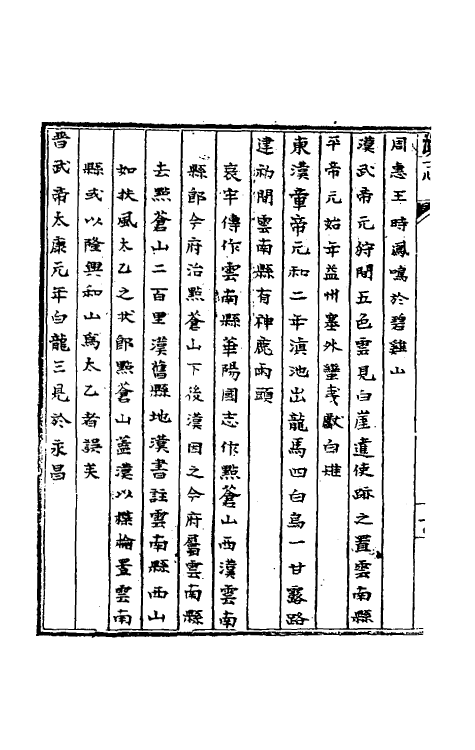 周惠王時鳳鳴於碧雞山
漢武帝元狩間五色雲見白崖遣使跡之置雲南縣
平帝元始年益州塞外蠻夷獻白雉
東漢章帝元和二年滇池出龍馬四白烏一甘露降
建初間雲南縣有神鹿兩頭
哀牢傳作雲南縣華陽國志作點蒼山西漢雲南
縣即今府治點蒼山下後漢因之今府屬雲南縣
去點蒼山二百里漢舊縣地漢書註雲南縣西山
如扶風太乙之狀即點蒼山蓋漢以楪榆置雲南
縣或以隆興和山為太乙者誤矣
晉武帝太康元年白龍三見於永昌